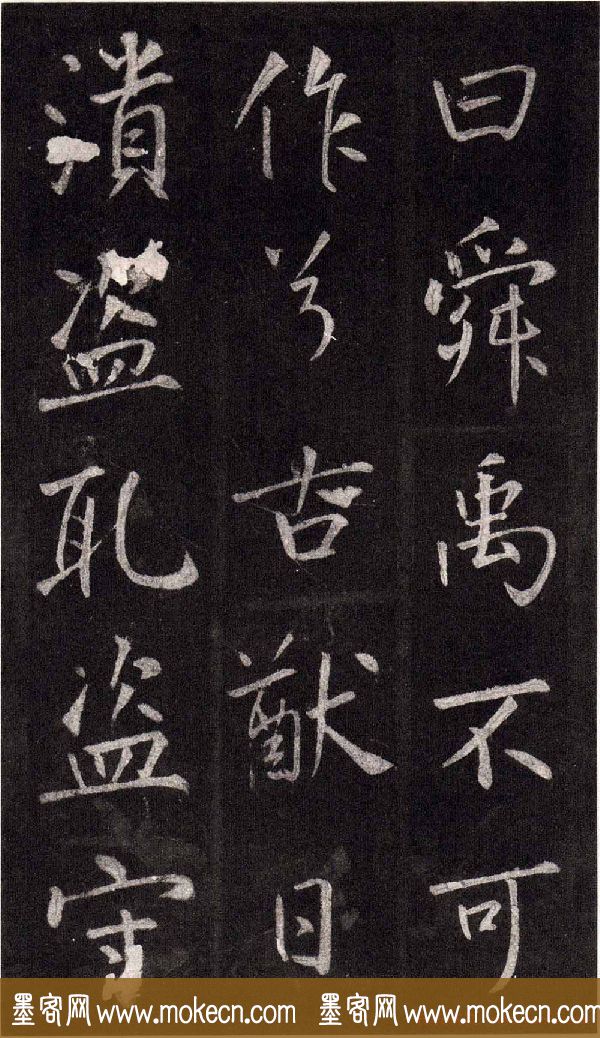 曰舜禹不可
作兮古猷日
潰盜耴盜守
墨客网 www.mokecn.com 墨客网 www.mokecn.com